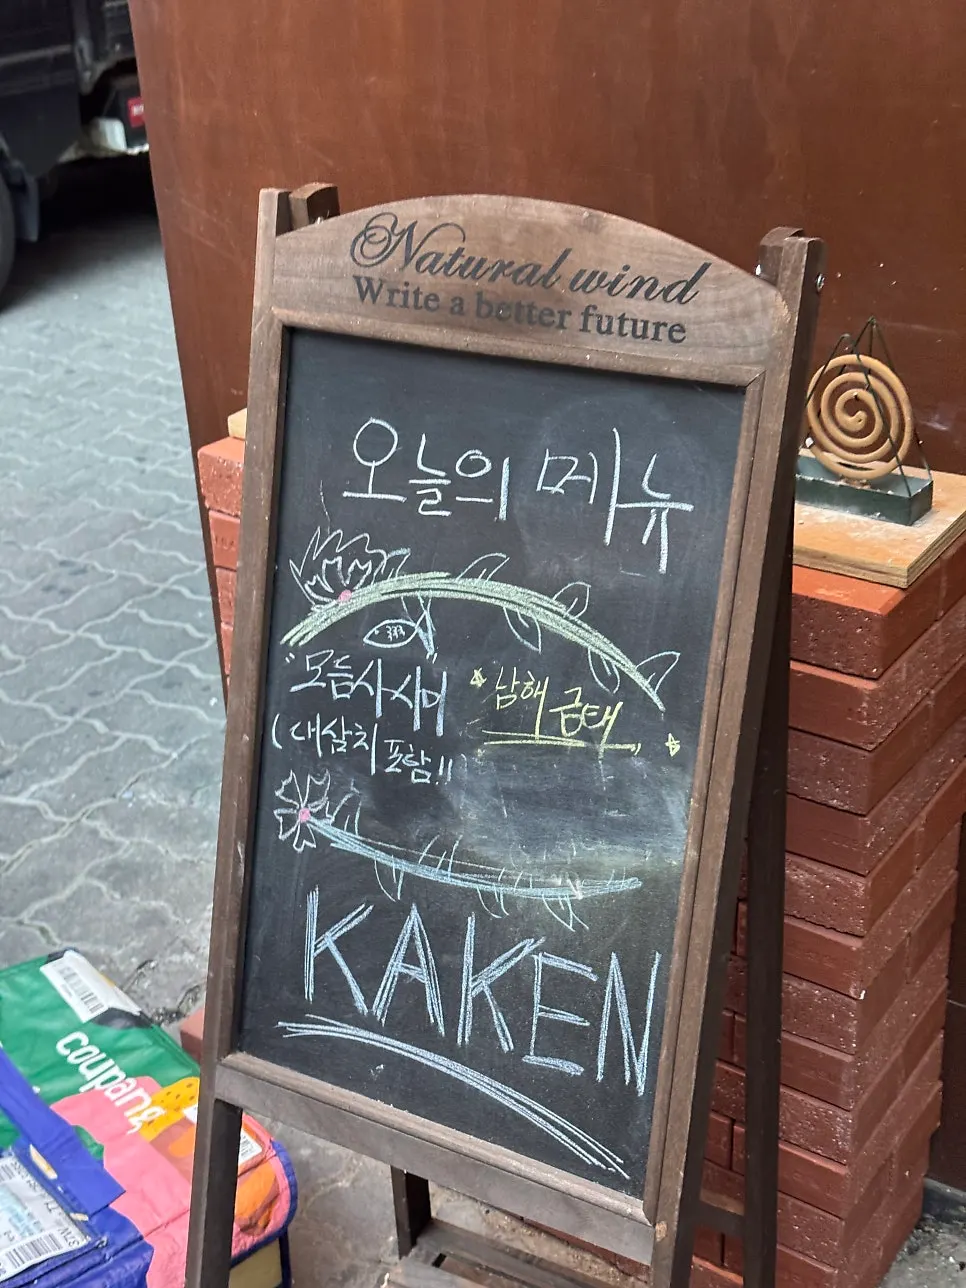 Natural wind
Write a better future
오늘의 메뉴
"모듬사시미
(대삼치 포함!!)
*남해 금태
KAKEN
coupang